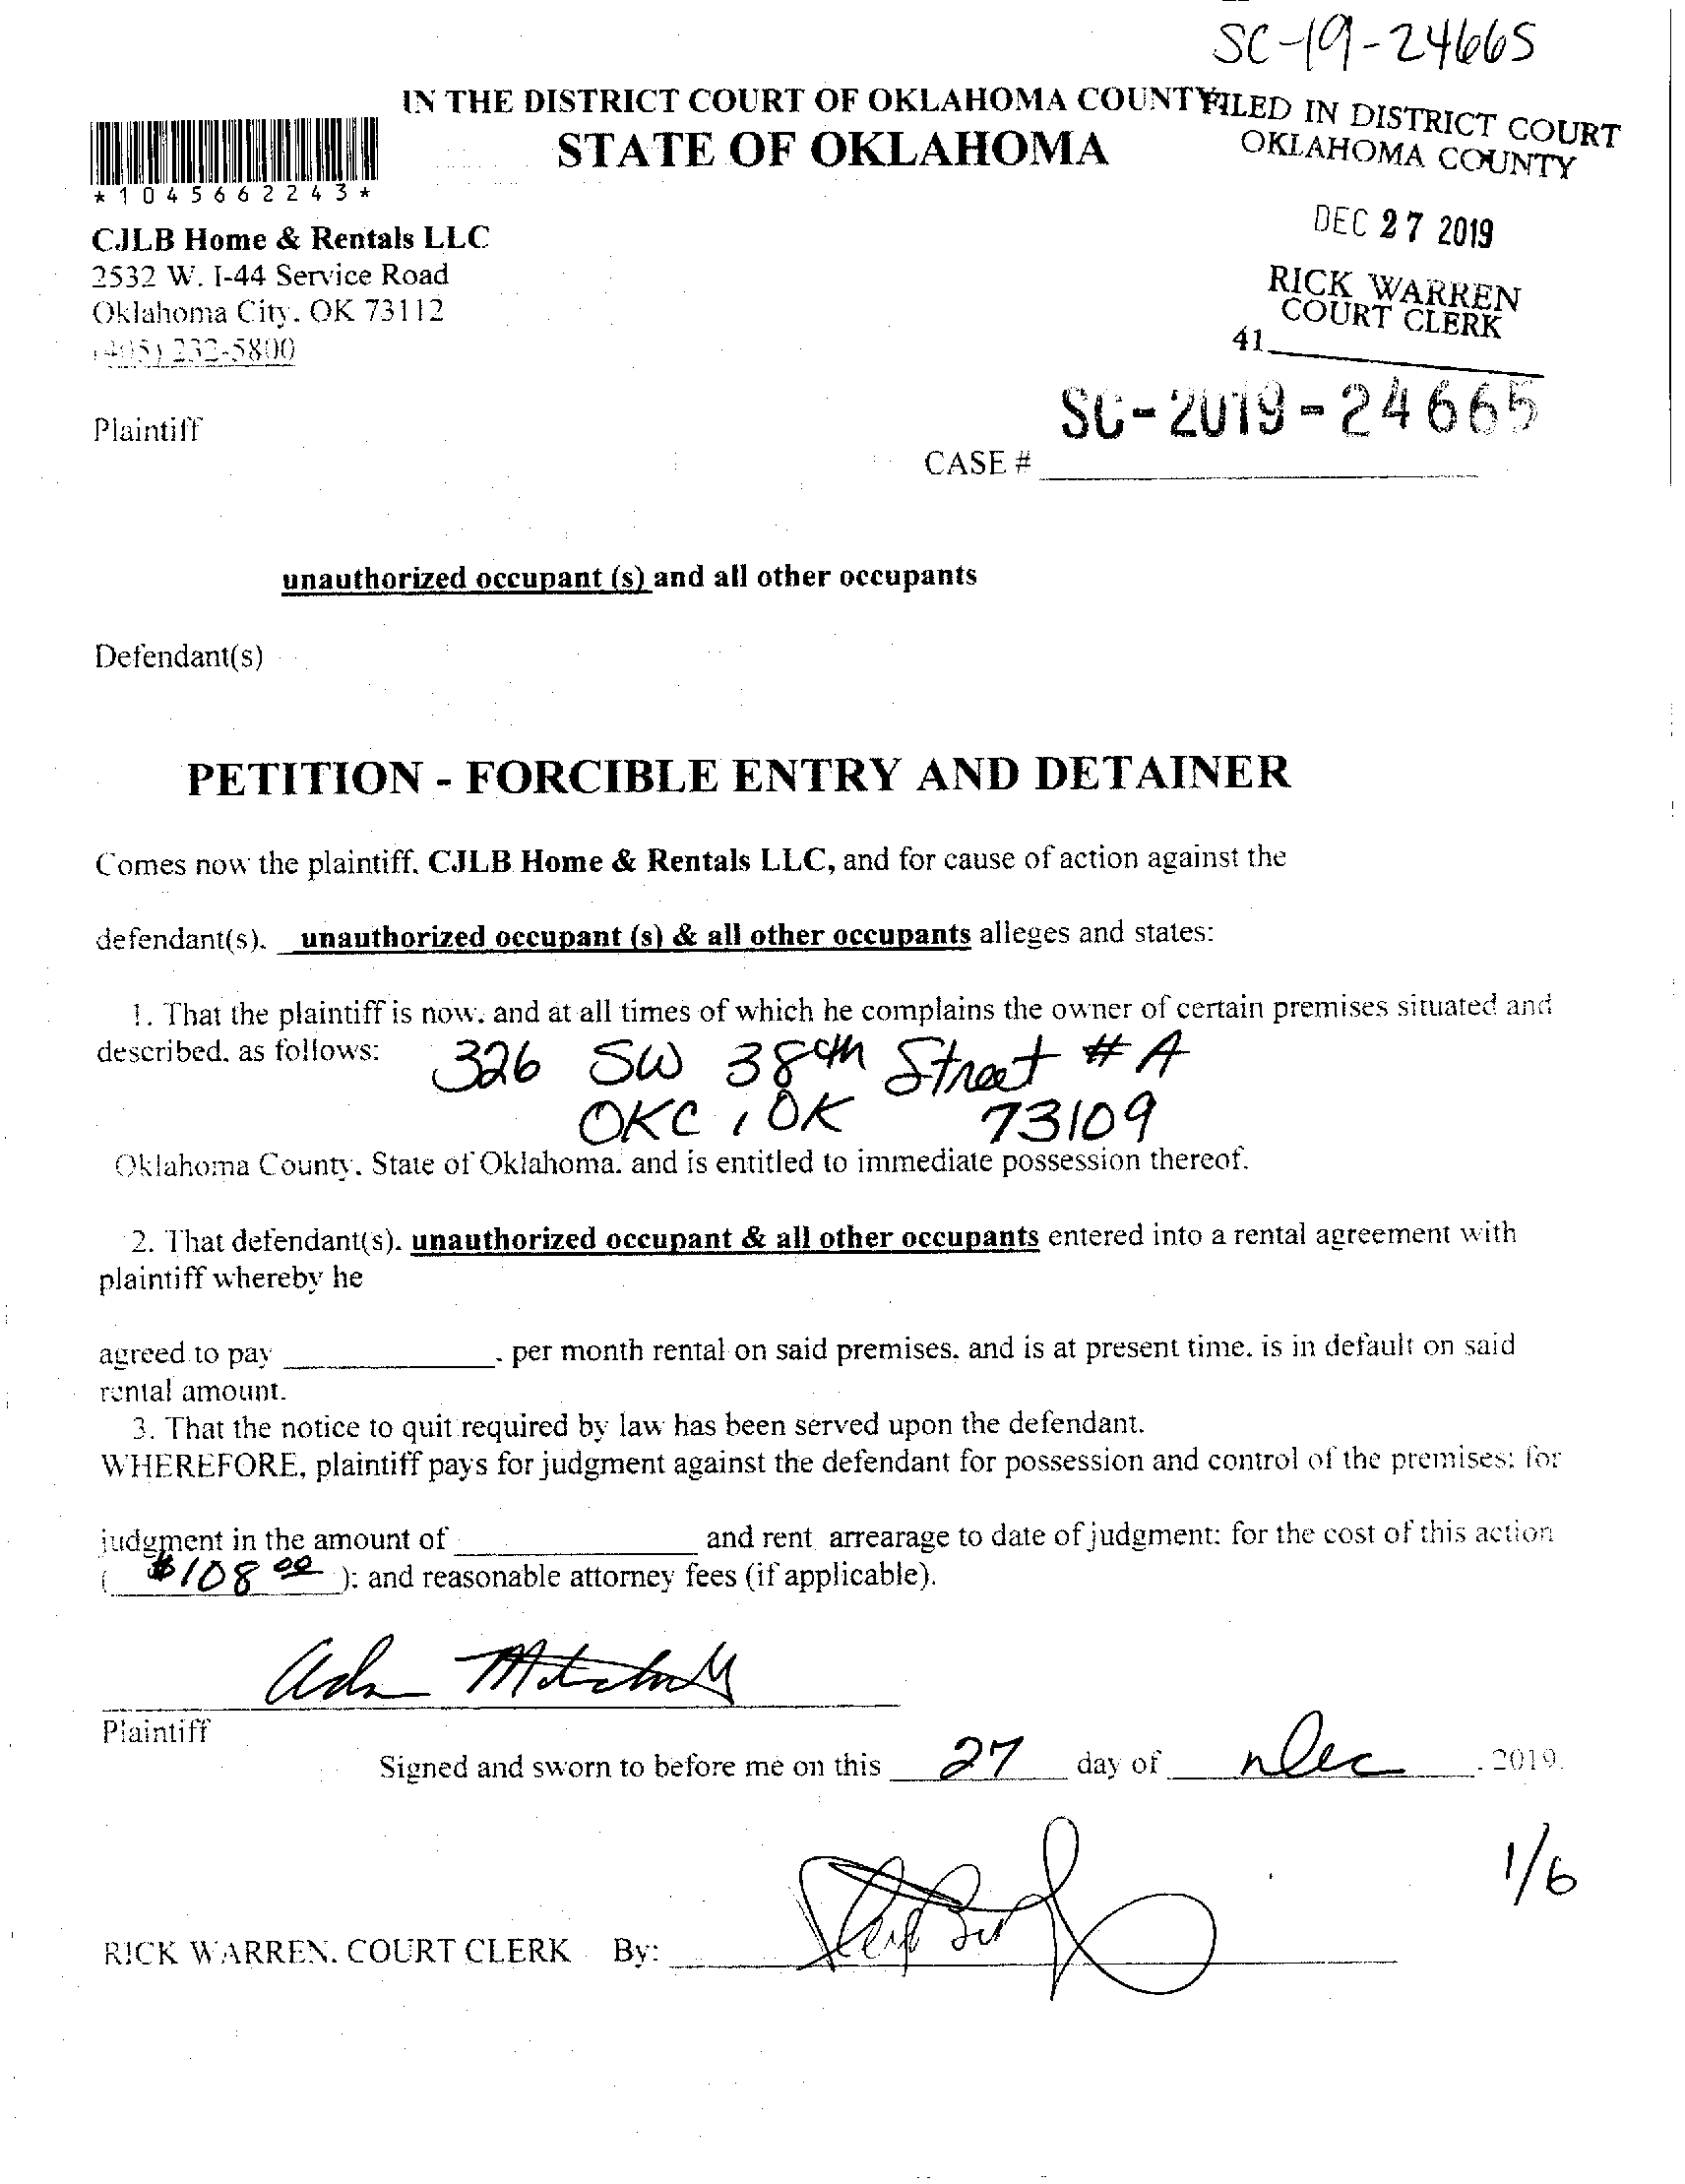 SC-19-24665
IN THE DISTRICT COURT OF OKLAHOMA COUNTY
STATE OF OKLAHOMA
FILED IN DISTRICT COURT
OKLAHOMA COUNTY
*1045662243*
DEC 27 2019
CJLB Home & Rentals LLC
2532 W. I-44 Service Road
Oklahoma City, OK 73112
(405) 232-5800
RICK WARREN
COURT CLERK
41
Plaintiff
SC-2019-24665
CASE #
unauthorized occupant (s) and all other occupants
Defendant(s)
PETITION - FORCIBLE ENTRY AND DETAINER
Comes now the plaintiff, CJLB Home & Rentals LLC, and for cause of action against the
defendant(s). unauthorized occupant (s) & all other occupants alleges and states:
1. That the plaintiff is now, and at all times of which he complains the owner of certain premises situated and
described, as follows: 326 SW 38th Street # A
OKC, OK 73109
Oklahoma County, State of Oklahoma, and is entitled to immediate possession thereof.
2. That defendant(s). unauthorized occupant & all other occupants entered into a rental agreement with
plaintiff whereby he
agreed to pay ______________. per month rental on said premises, and is at present time, is in default on said
rental amount.
3. That the notice to quit required by law has been served upon the defendant.
WHEREFORE, plaintiff pays for judgment against the defendant for possession and control of the premises: for
judgment in the amount of ________________ and rent arrearage to date of judgment: for the cost of this action
( $108 00 ): and reasonable attorney fees (if applicable).
Plaintiff
Signed and sworn to before me on this 27 day of Dec. 2019.
1/6
RICK WARREN, COURT CLERK By: